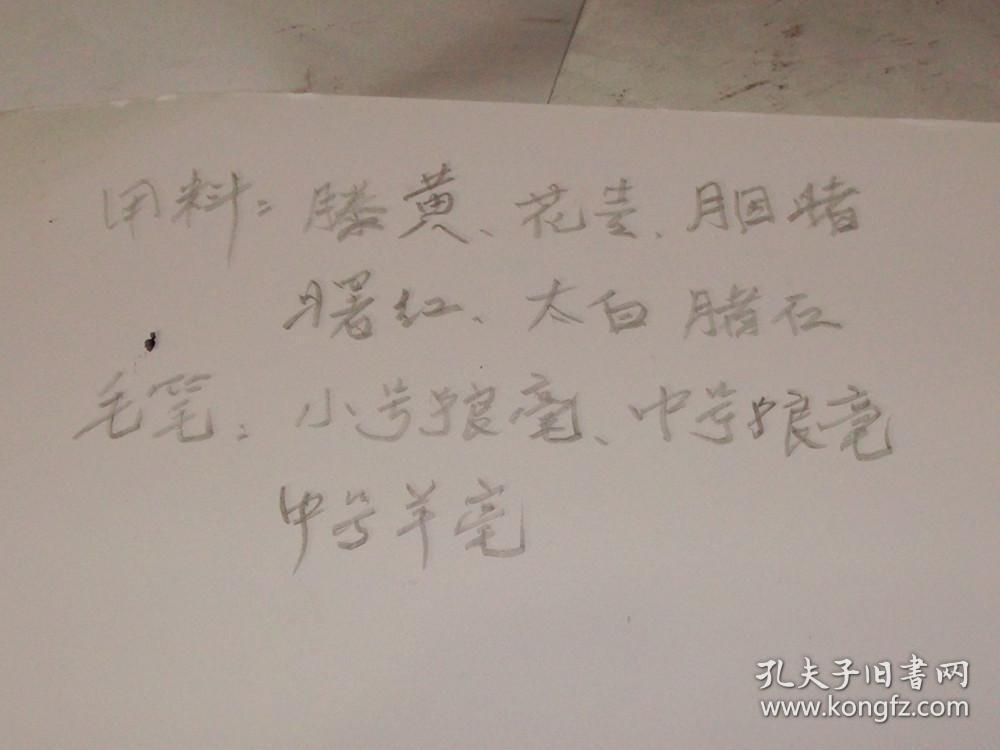 用料：滕黄、花青、胭睹
曙红、太白 睹石
毛笔：小号狼毫、中号狼毫
中号羊毫
孔夫子旧書网
www.kongfz.com